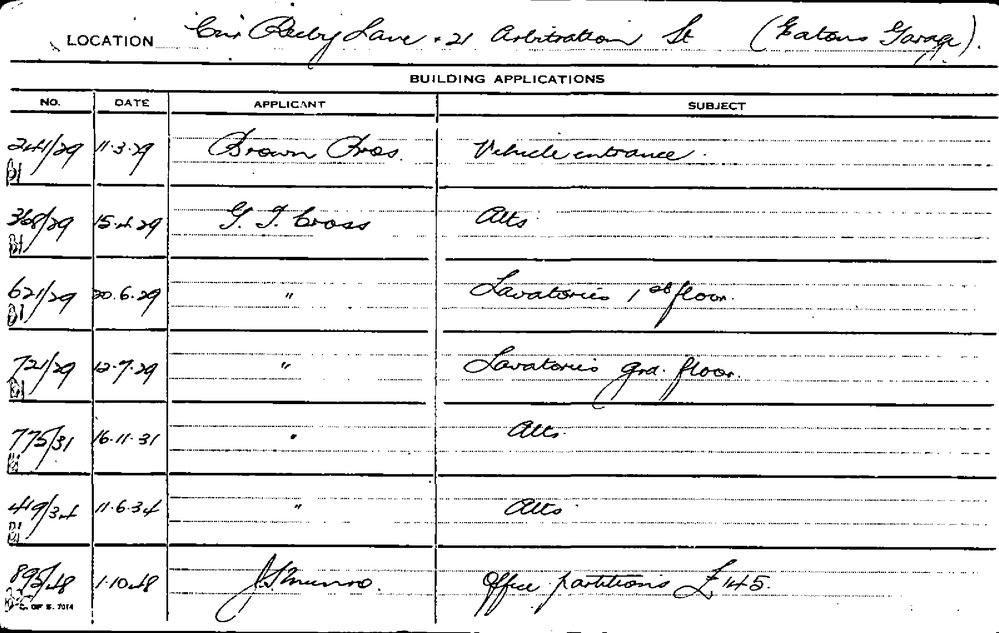 LOCATION Cnr Reiby Lane & 21 Arbitration St (Eatons Garage).
BUILDING APPLICATIONS
NO. DATE APPLICANT SUBJECT
241/29 11.3.29 Brown Bros. Vehicle entrance.
368/29 15.4.29 G. T. Cross Alts
621/29 20.6.29 " Lavatories 1st floor.
721/29 12.7.29 " Lavatories grd. floor.
775/31 16.11.31 " Alts
419/34 11.6.34 " Alts
895/48 1.10.48 Munro. Office partitions £145.
C. OF S. 7014